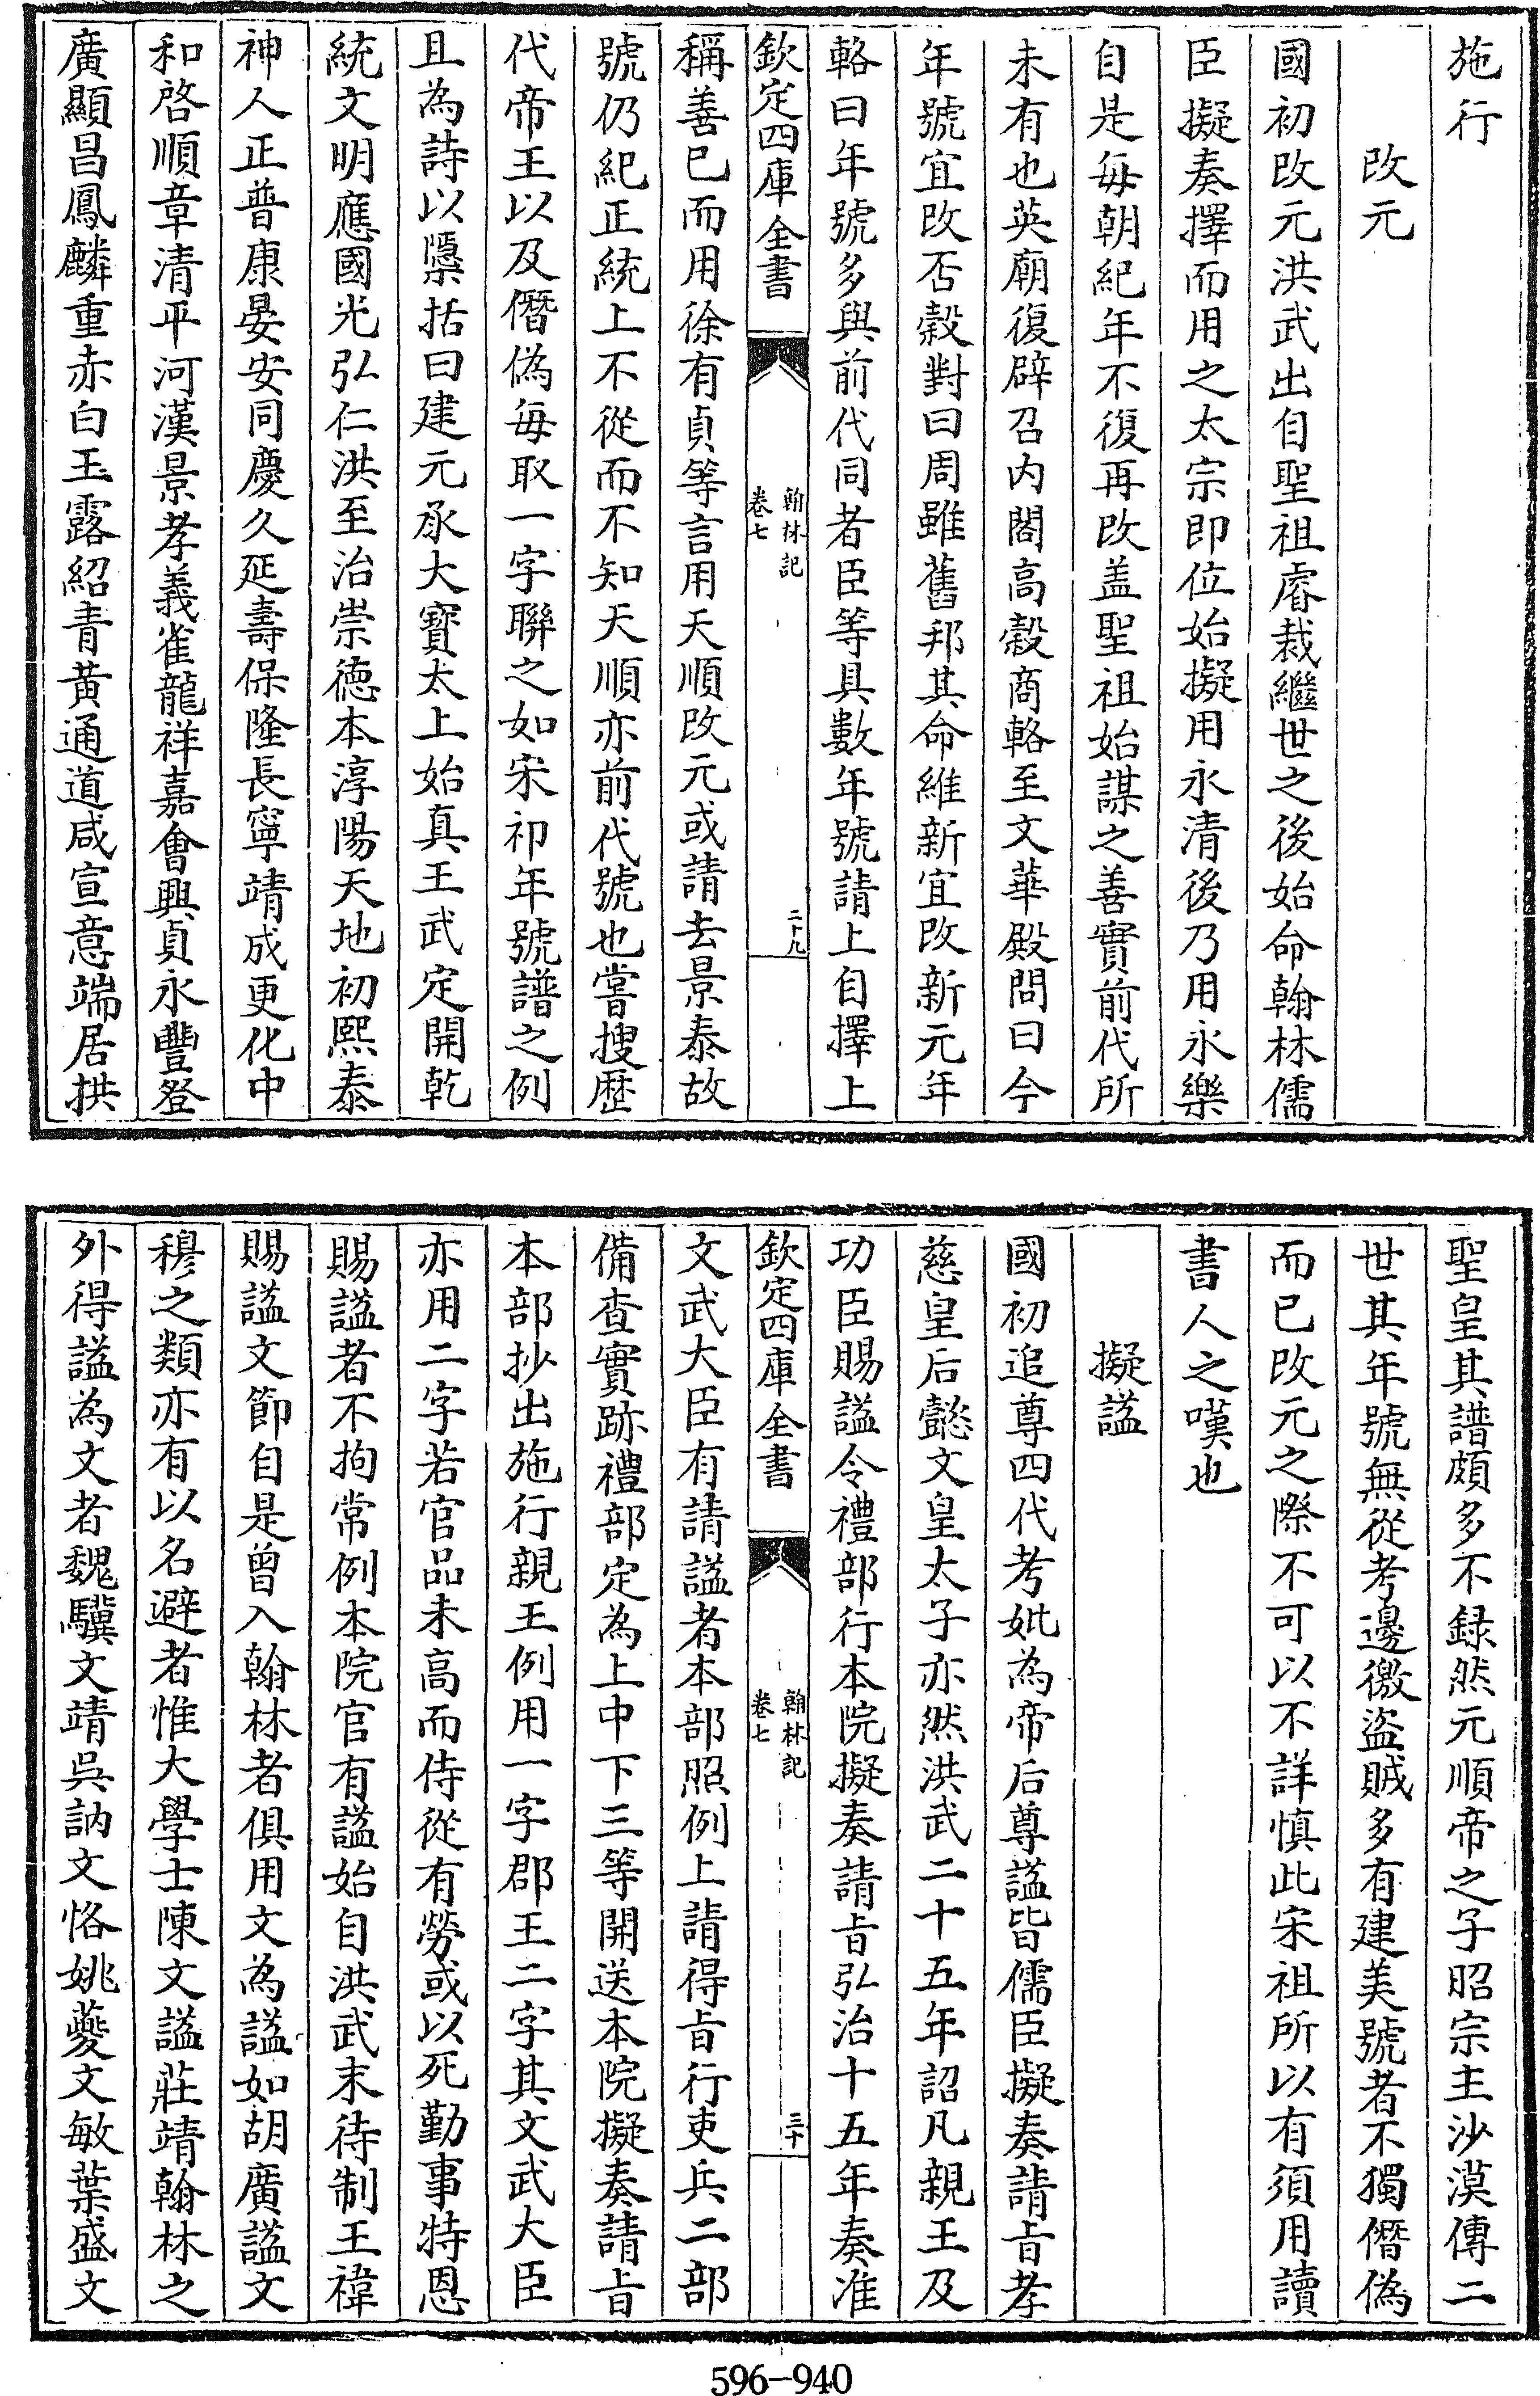 施行
改元
國初改元洪武出自聖祖睿裁繼世之後始命翰林儒
臣擬奏擇而用之太宗即位始擬用永清後乃用永樂
自是每朝紀年不復再改盖聖祖始謀之善實前代所
未有也英廟復辟召内閣高糓商輅至文華殿問曰今
年號宜改否糓對曰周雖舊邦其命維新宜改新元年
輅曰年號多與前代同者臣等具數年號請上自擇上
欽定四庫全書
翰林記
卷七
二十九
稱善已而用徐有貞等言用天順改元或請去景泰故
號仍紀正統上不從而不知天順亦前代號也嘗搜歴
代帝王以及僭偽每取一字聯之如宋祁年號譜之例
且為詩以檃括曰建元承大寳太上始真王武定開乾
統文明應國光弘仁洪至治崇徳本淳陽天地初熙泰
神人正普康晏安同慶久延壽保隆長寧靖成更化中
和啓順章清平河漢景孝義雀龍祥嘉會興貞永豐登
廣顯昌鳳麟重赤白玉露紹青黄通道咸宣意端居拱
聖皇其譜頗多不録然元順帝之子昭宗主沙漠傳二
世其年號無從考邊徼盗賊多有建美號者不獨僭偽
而已改元之際不可以不詳慎此宋祖所以有須用讀
書人之嘆也
擬諡
國初追尊四代考妣為帝后尊諡皆儒臣擬奏請㫖孝
慈皇后懿文皇太子亦然洪武二十五年詔凡親王及
功臣賜諡令禮部行本院擬奏請㫖弘治十五年奏准
欽定四庫全書
翰林記
卷七
三十
文武大臣有請諡者本部照例上請得㫖行吏兵二部
備查實跡禮部定為上中下三等開送本院擬奏請㫖
本部抄出施行親王例用一字郡王二字其文武大臣
亦用二字若官品未高而侍從有勞或以死勤事特恩
賜諡者不拘常例本院官有諡始自洪武末待制王禕
賜諡文節自是曾入翰林者俱用文為諡如胡廣諡文
穆之類亦有以名避者惟大學士陳文諡莊靖翰林之
外得諡為文者魏驥文靖吳訥文恪姚夔文敏葉盛文
596-940